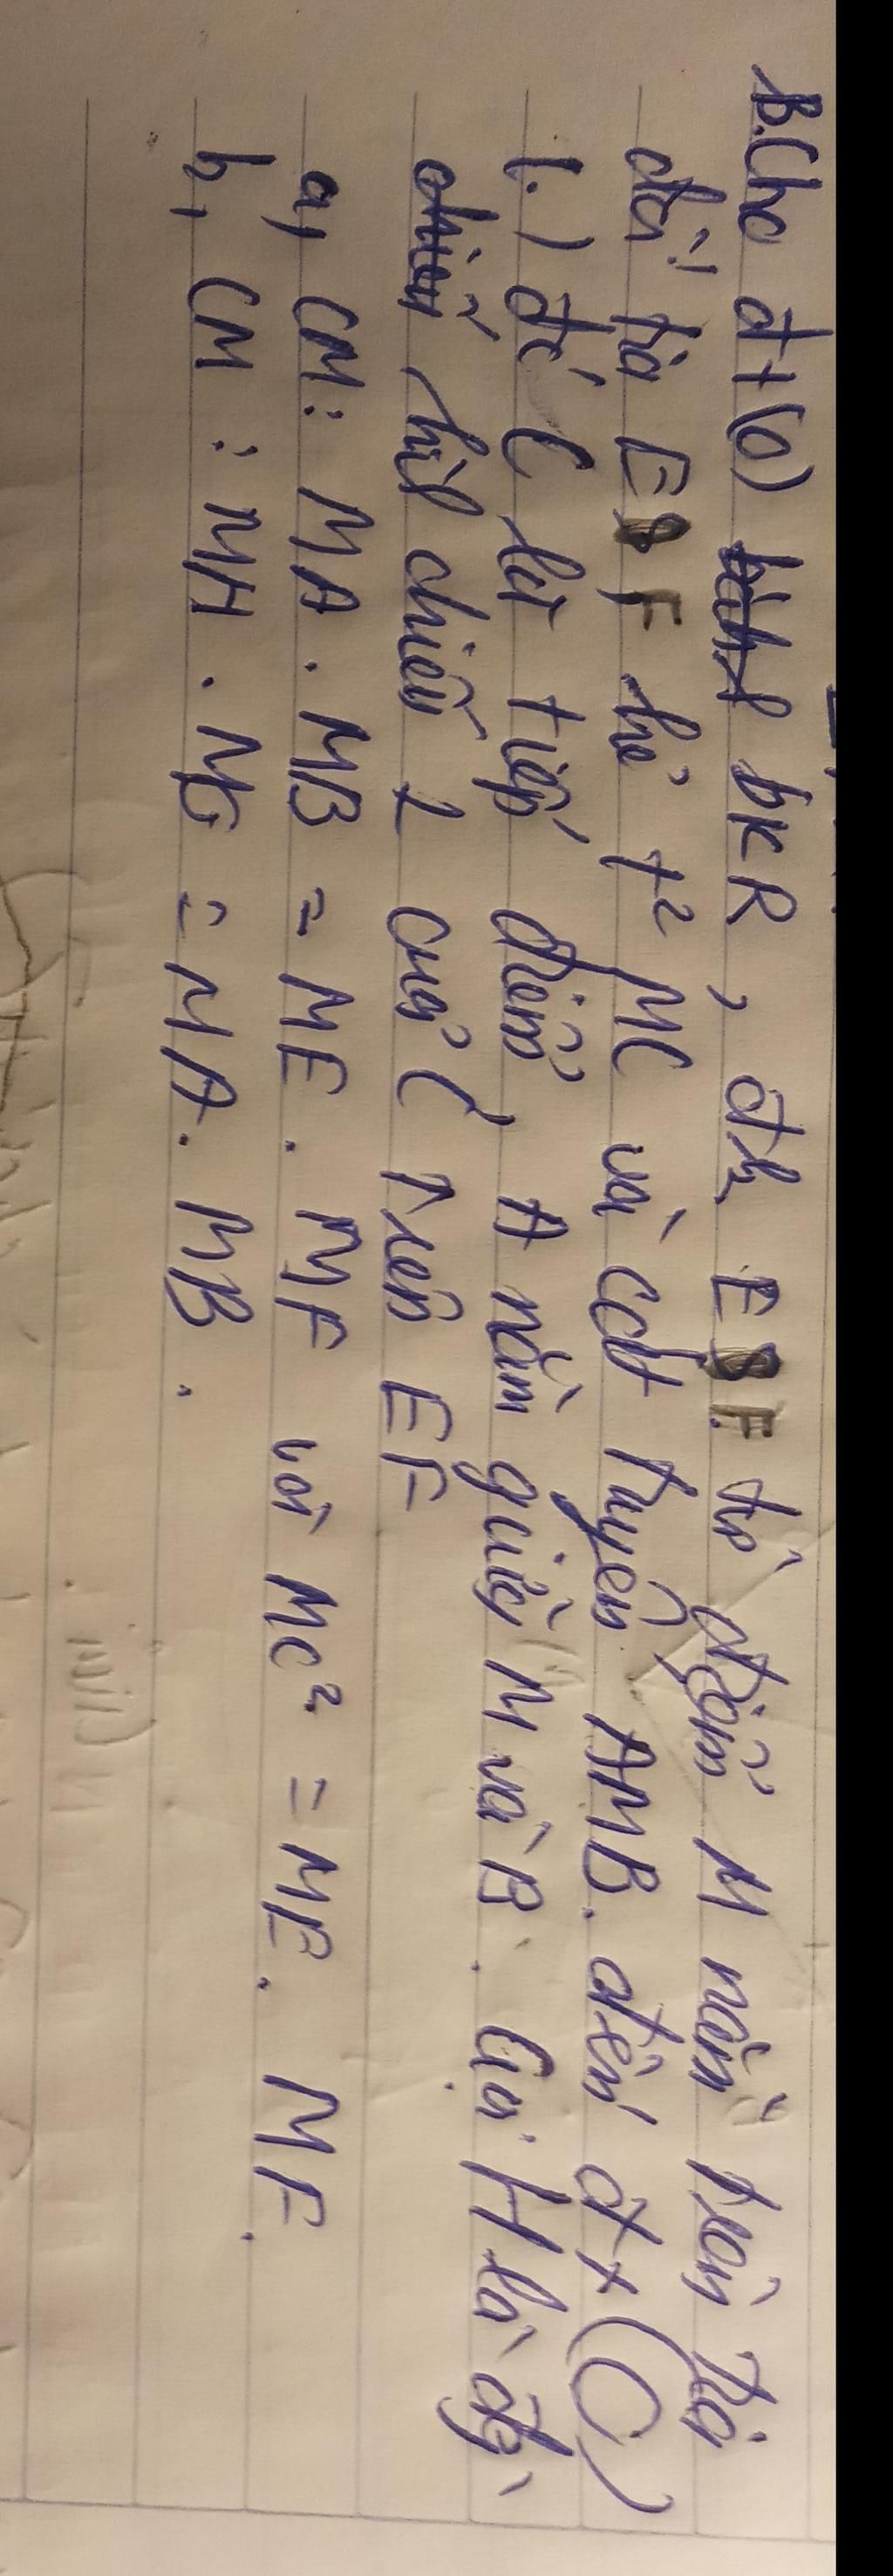 B. Cho đt (O) bk R, đk EF từ điểm M nằm trên tia
đối tia EF kẻ t² MC và cát tuyến AMB. đến đt (O)
(.) đó C là tiếp điểm, A nằm giữa M và B. Gọi H là
hình chiếu ⊥ của C trên EF
a, CM: MA. MB = ME. MF và MC² = ME. MF.
b, CM: MH. MO = MA. MB.